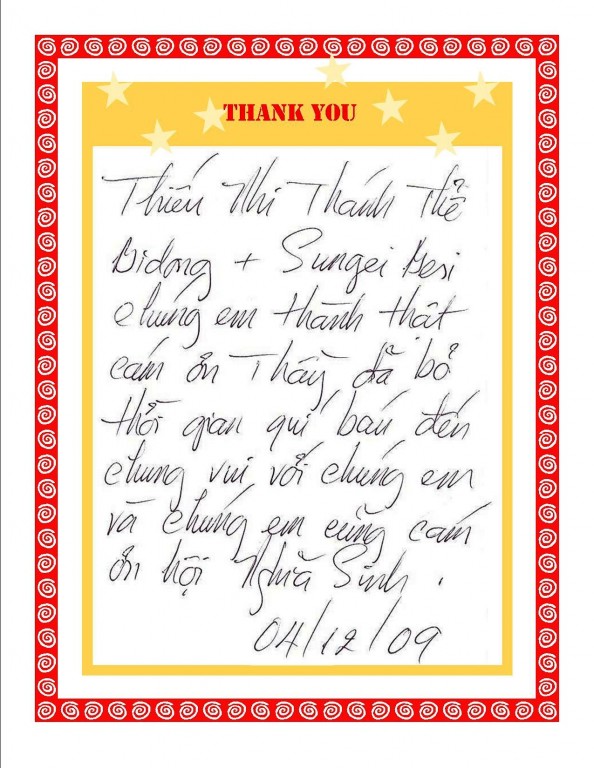 THANK YOU
Thiếu Nhi Thánh Thể
Bidong + Sungei Besi
chúng em thành thật
cám ơn Thầy đã bỏ
thời gian quí báu đến
chung vui với chúng em
và chúng em cũng cám
ơn hội Nghĩa Sinh.
04/12/09